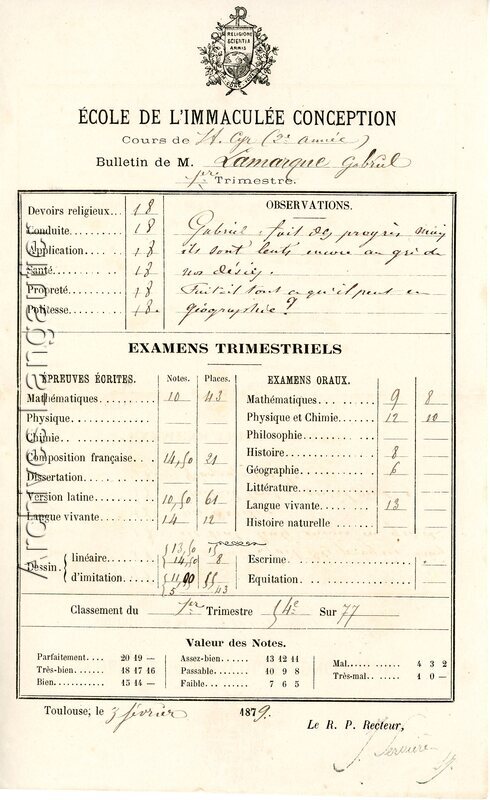 RELIGIONE
SCIENTIA
ARMIS
ÉCOLE DE L'IMMACULÉE CONCEPTION
Cours de St Cyr (2e année)
Bulletin de M. Lamarque Gabriel
1er Trimestre.
Devoirs religieux... 18
Conduite 18
Application 18
Santé 18
Propreté 18
Politesse 18.
OBSERVATIONS.
Gabriel fait des progrès mais
ils sont lents encore au gré de
nos désirs.
Fait-il tout ce qu'il peut en
géographie ?
EXAMENS TRIMESTRIELS
ÉPREUVES ÉCRITES. Notes. Places.
Mathématiques 10 43
Physique
Chimie
Composition française 14,50 21
Dissertation
Version latine 10,50 61
Langue vivante 14 12
Dessin linéaire 13,50 15
14,50 8
d'imitation 11,00 55
5 43
EXAMENS ORAUX.
Mathématiques 9 8
Physique et Chimie 12 10
Philosophie
Histoire 8
Géographie 6
Littérature
Langue vivante 13
Histoire naturelle
Escrime
Equitation
Classement du 1er Trimestre 54e Sur 77
Valeur des Notes.
Parfaitement.... 20 19 —
Très-bien 18 17 16
Bien 15 14 —
Assez-bien 13 12 11
Passable 10 9 8
Faible 7 6 5
Mal 4 3 2
Très-mal 1 0 —
Toulouse, le 3 février 1879.
Le R. P. Recteur,
Archives Laguarigue